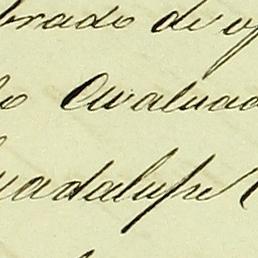 brado de
lo Avaluad
uadalupe